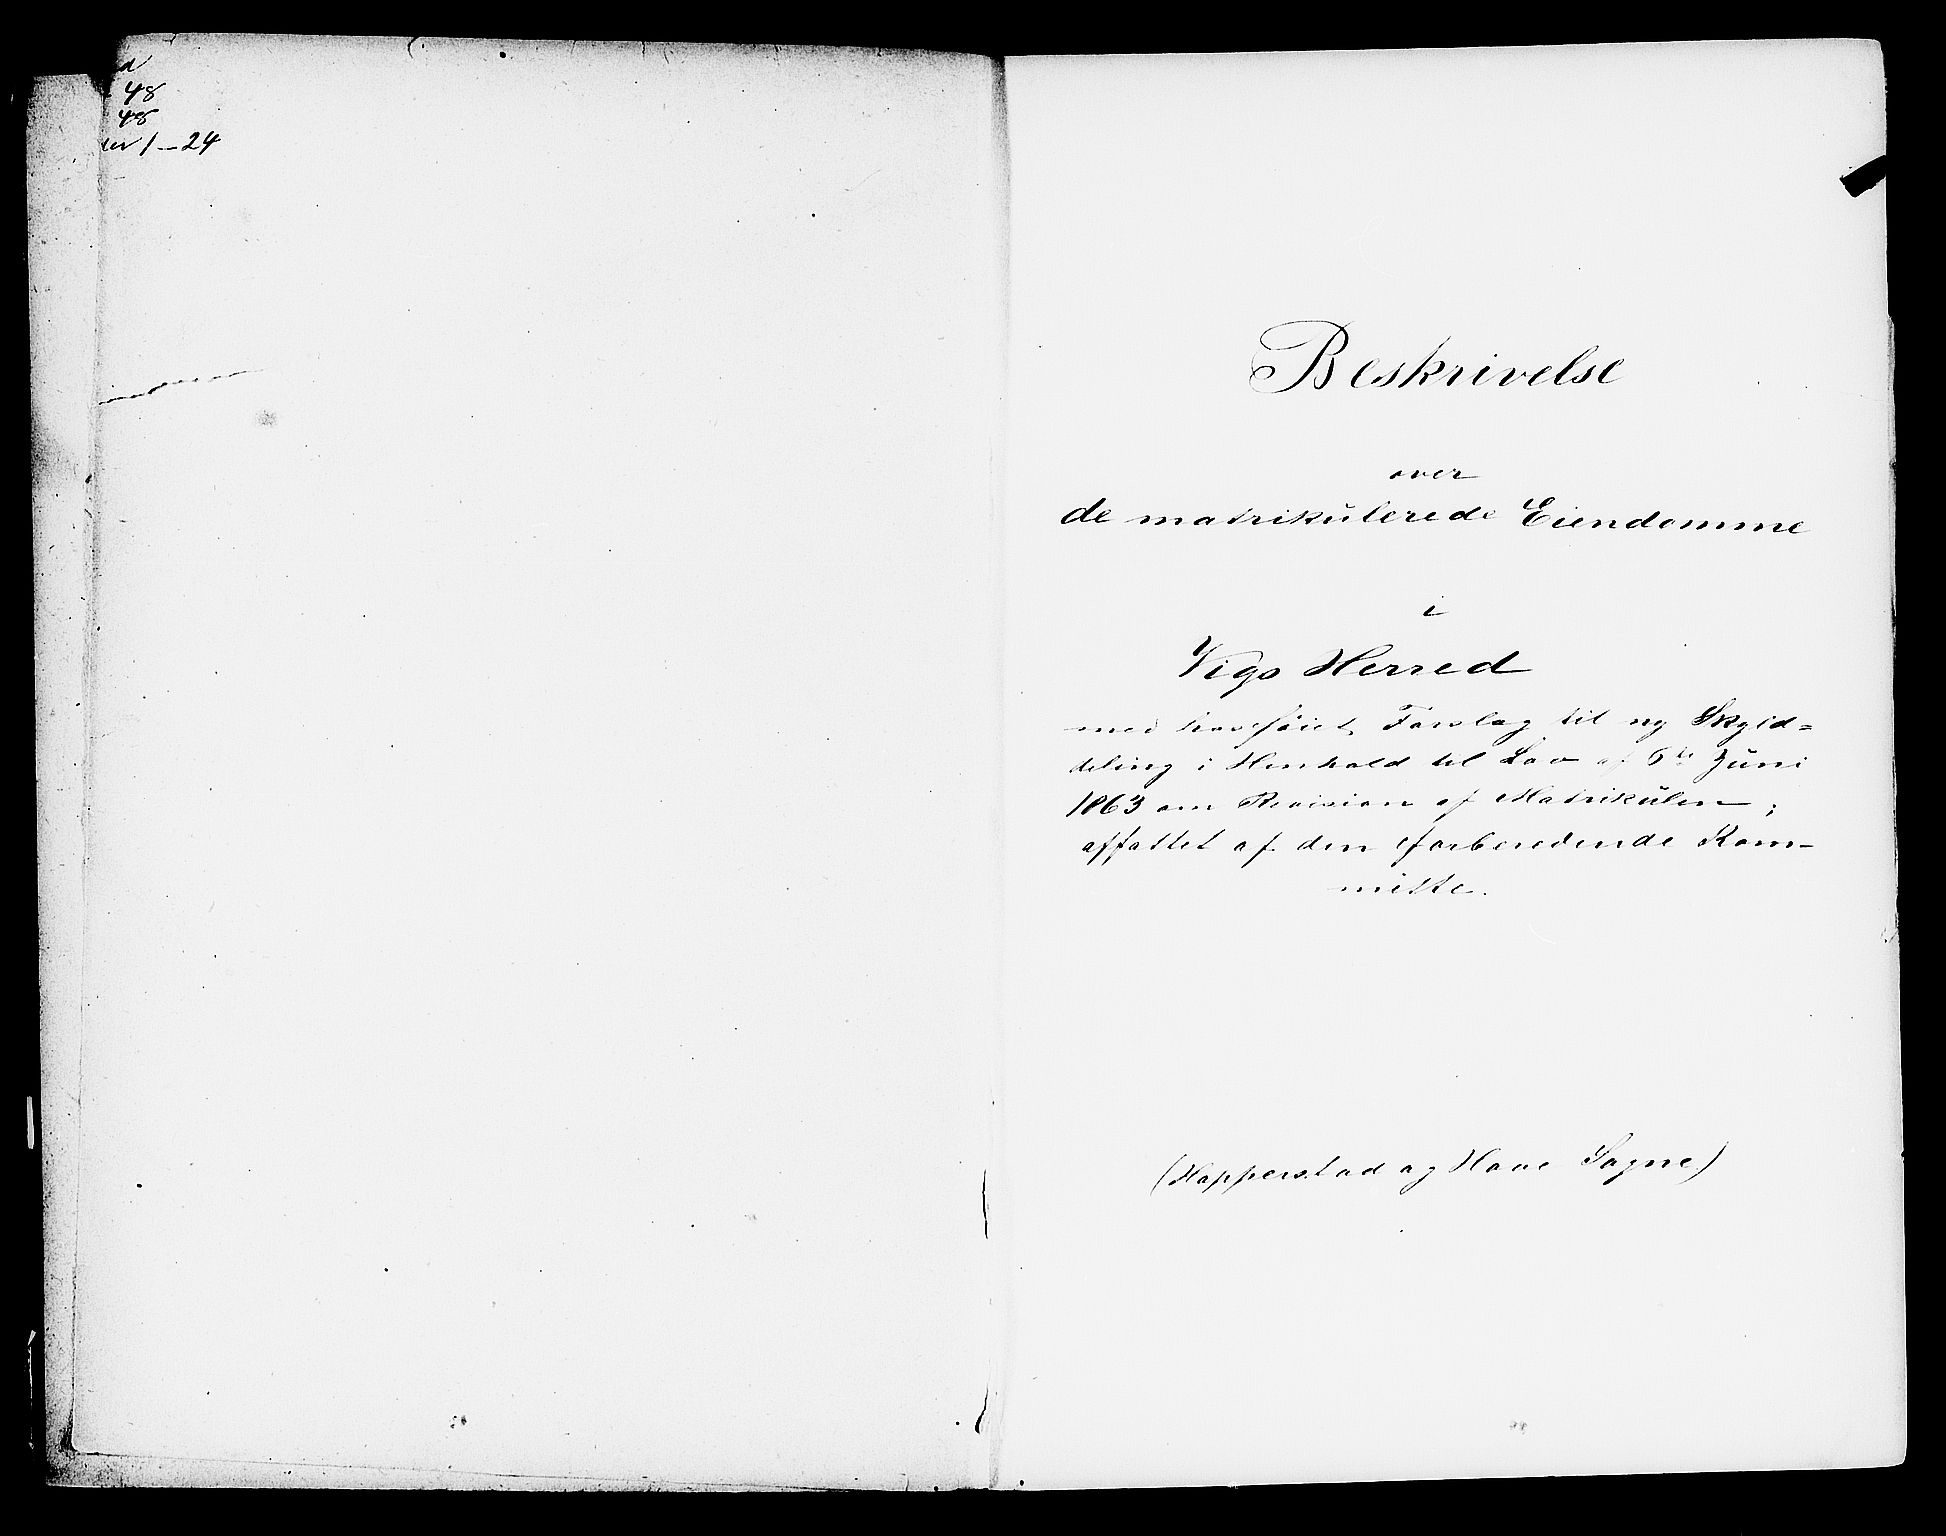 48
48
1–24
Beskrivelse
over
de matrikülerede Eiendomme
i
Vigs Herred
med hosføiet Forslag til ny Skyld=
deling i Henhold til Lov af 6te Jüni
1863 om Revision af Matrikülen;
affattet af den forberedende Kom-
mitte.
(Hopperstad og Hove Sogne)